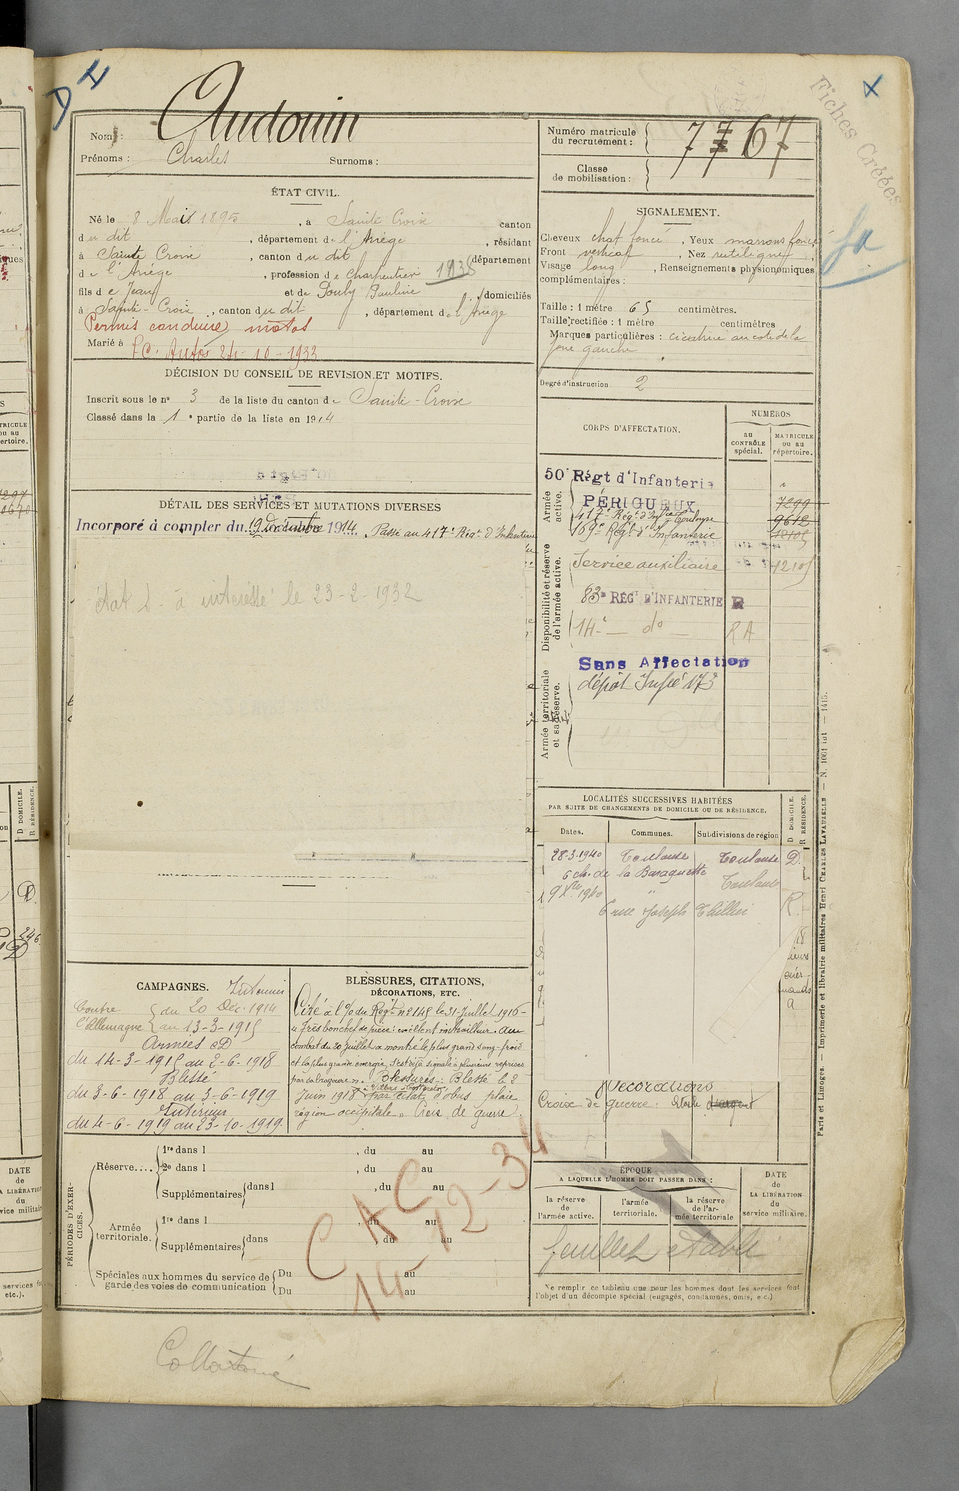 Fiches Créées
D
Audouin
Nom :
Prénoms : Charles Surnoms :
Numéro matricule du recrutement : 7767
Classe de mobilisation :
ÉTAT CIVIL.
Né le 8 Mars 1895, à Sainte Croix canton
du dit, département de l'Ariège, résidant
à Sainte Croix, canton du dit département
de l'Ariège, profession de Charpentier 1935
fils de Jean et de Pauline domiciliés
à Sainte-Croix, canton du dit, département de l'Ariège
Permis conduire motos
Marié à P.C. Autos 24-10-1933
SIGNALEMENT.
Cheveux chat foncé, Yeux marrons foncé
Front vertical, Nez rectiligne
Visage long, Renseignements physionomiques
complémentaires :
Taille : 1 mètre 65 centimètres.
Taille rectifiée : 1 mètre centimètres
Marques particulières : cicatrice au coté de la
joue gauche
Degré d'instruction 2
DÉCISION DU CONSEIL DE REVISION ET MOTIFS.
Inscrit sous le nº 3 de la liste du canton de Sainte-Croix
Classé dans la 1e partie de la liste en 1914
DÉTAIL DES SERVICES ET MUTATIONS DIVERSES
Incorporé à compter du 19 décembre 1914. Passé au 417e Régt d'Infanterie
le 23-2-1932
CORPS D'AFFECTATION.
NUMÉROS
au CONTRÔLE spécial.
MATRICULE ou au répertoire.
Armée active.
50e Régt d'Infanterie
PÉRIGUEUX
7299
417e Régt d'Infie
9612
169e Régt d'Infanterie
Disponibilité et réserve de l'armée active.
Service auxiliaire
83e RÉGt D'INFANTERIE R
14e — do — RA
Armée territoriale et sa réserve.
Sans Affectation
dépôt Infie 173
LOCALITÉS SUCCESSIVES HABITÉES
PAR SUITE DE CHANGEMENTS DE DOMICILE OU DE RÉSIDENCE.
Dates. Communes. Subdivisions de région
D DOMICILE.
R RÉSIDENCE.
28.3.1940 Toulouse Toulouse D.
6 ch. de la Baraquette
1940 " Toulouse R.
6 rue Joseph
CAMPAGNES.
Intérieur
Contre l'Allemagne
du 20 Déc. 1914
au 13-3-1915
Armées D
du 14-3-1915 au 2-6-1918
Blessé
du 3-6-1918 au 3-6-1919
Intérieur
du 4-6-1919 au 23-10-1919
BLESSURES, CITATIONS,
DÉCORATIONS, ETC.
Cité à l'O/ du Régt nº 145 le 31 Juillet 1916 -
« Très bon chef de pièce : excellent mitrailleur. Au
combat du 20 juillet a montré le plus grand sang-froid
et la plus grande énergie, s'est déjà signalé à plusieurs reprises
par sa bravoure ». Blessures : Blessé le 2
Juin 1918 par éclat d'obus plaie
région occipitale. Croix de guerre.
Décorations
Croix de guerre. Etoile
PÉRIODES D'EXERCICES.
Réserve....
1re dans l , du au
2e dans l , du au
Supplémentaires dans l , du au
Armée territoriale.
1re dans l , du au
Supplémentaires dans , du au
Spéciales aux hommes du service de garde des voies de communication
Du au
Du au
CAC
14-12-34
ÉPOQUE
A LAQUELLE L'HOMME DOIT PASSER DANS :
la réserve de l'armée active.
l'armée territoriale.
la réserve de l'armée territoriale
DATE de LA LIBÉRATION du service militaire.
feuillet établi
Ne remplir ce tableau que pour les hommes dont les services font
l'objet d'un décompte spécial (engagés, condamnés, omis, etc.)
Paris et Limoges. — Imprimerie et librairie militaires Henri CHARLES-LAVAUZELLE — N. 1001 int — 1415.
Collationné